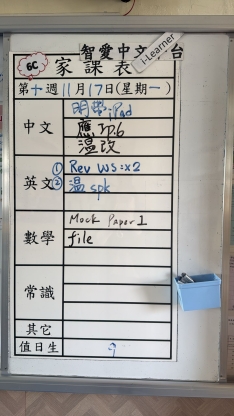 智愛中文平台
i-Learner
6C
家課表
第十週11月17日(星期一)
中文
明帶iPad
應JP.6
溫改
英文
① Rev WS:x2
② 温 spk
數學
Mock Paper 1
file
常識
其它
值日生
9